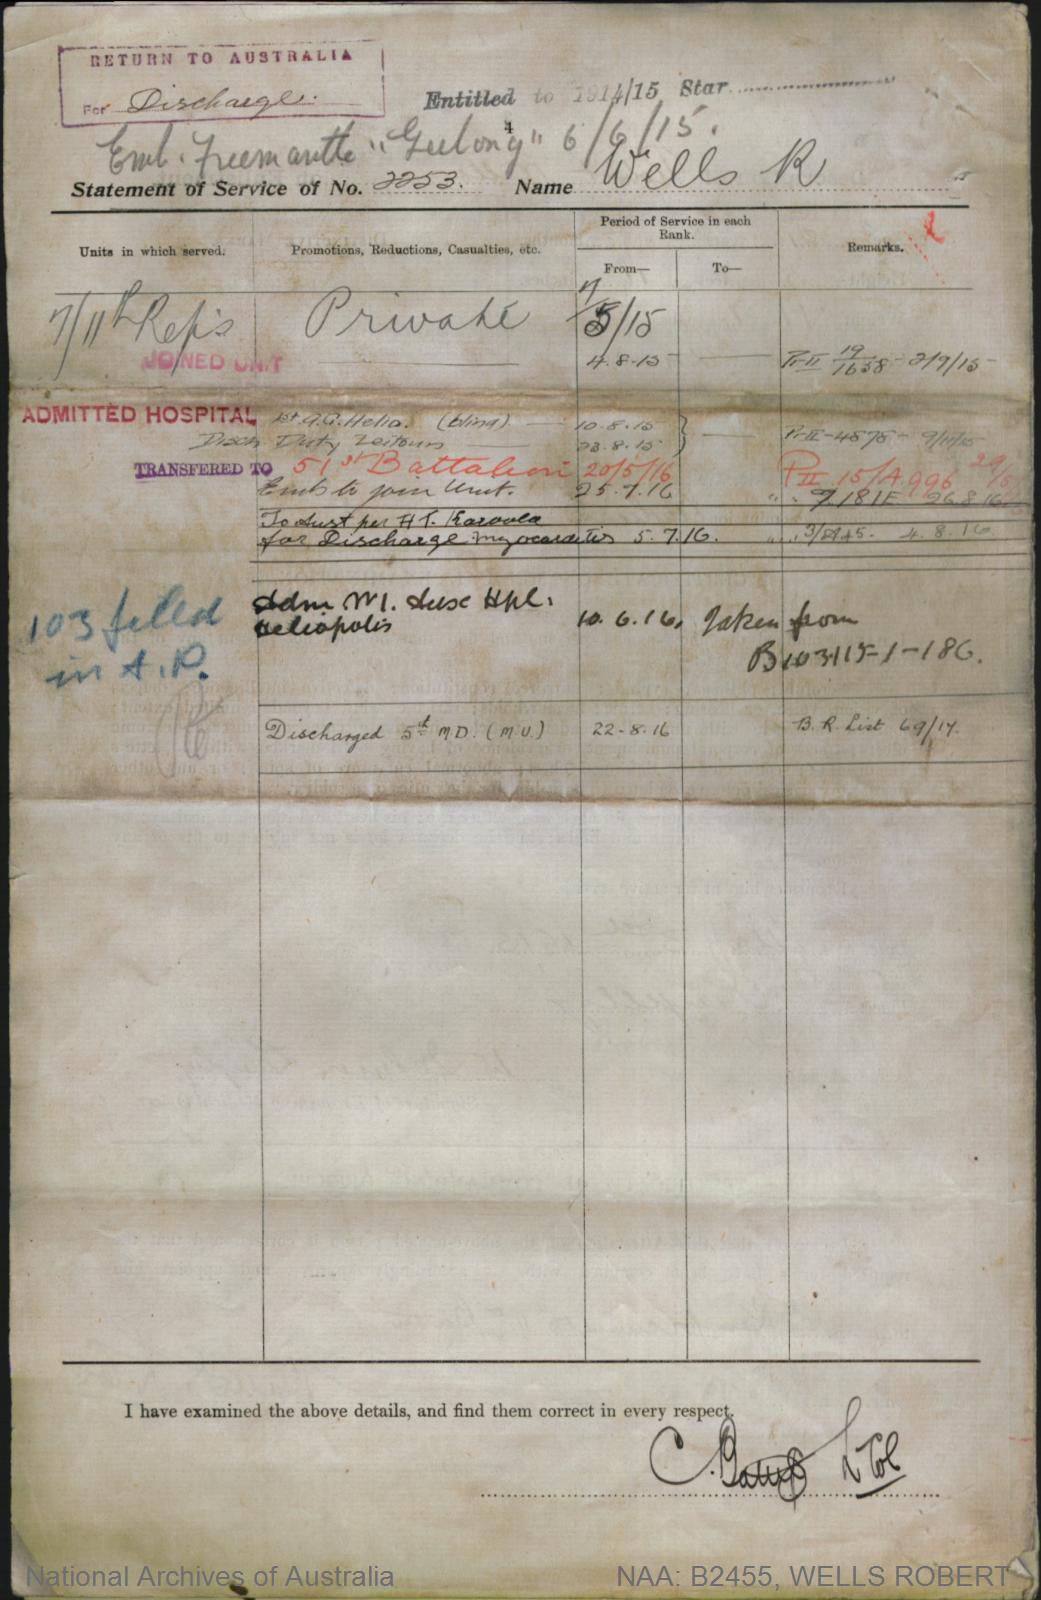 RETURN TO AUSTRALIA
For Discharge.
Entitled to 1914/15 Star
Emb. Fremantle "Geelong" 6/6/15.
Statement of Service of No. 2253. Name Wells R
Units in which served. Promotions, Reductions, Casualties, etc. Period of Service in each Rank. From— To— Remarks.
7/11th Refs Private 5/15
JOINED UNIT 4.8.15 Pt II 19/1658 2/9/15
ADMITTED HOSPITAL 1st A.G. Helio. 10.8.15
Disch Duty Zeitoun 23.8.15 Pt II 4878 9/11/15
TRANSFERED TO 51st Battalion 20/5/16 P II 15/A.996 29/5
Emb to join Unit. 25.7.16 26.8.16
To Aust per H.T. Karoola
for Discharge myocarditis 5.7.16. 4.8.16
103 filled
in A.R.
Adm No 1. Aux Hpl.
Heliopolis 10.6.16. Taken from
B103115-1-186.
Discharged 5th M.D. (M.U.) 22-8-16 B.R. List 69/17.
I have examined the above details, and find them correct in every respect.
C. L Col
National Archives of Australia NAA: B2455, WELLS ROBERT